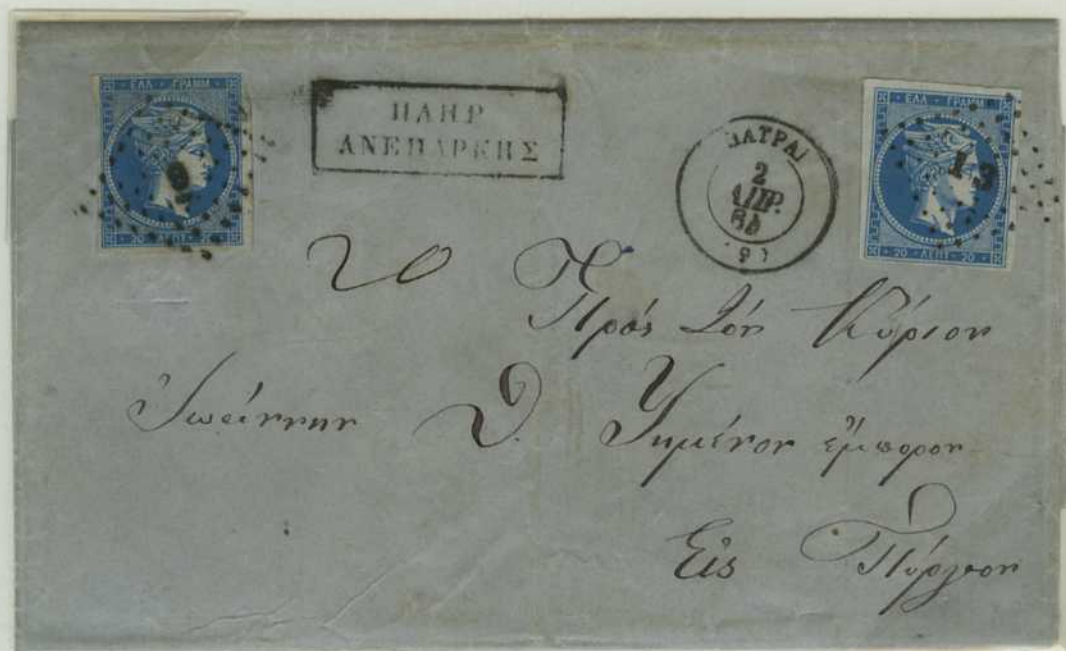 ΕΛΛ · ΓΡΑΜΜ
9
20 ΛΕΠΤ
ΠΛΗΡ
ΑΝΕΠΑΡΚΗΣ
ΠΑΤΡΑΙ
2
ΑΠΡ.
64
(9)
ΕΛΛ · ΓΡΑΜΜ
13
20 · ΛΕΠΤ · 20
20
Πρὸς τὸν Κύριον
Ἰωάννην Θ. ἔμπορον
Εἰς Πύργον